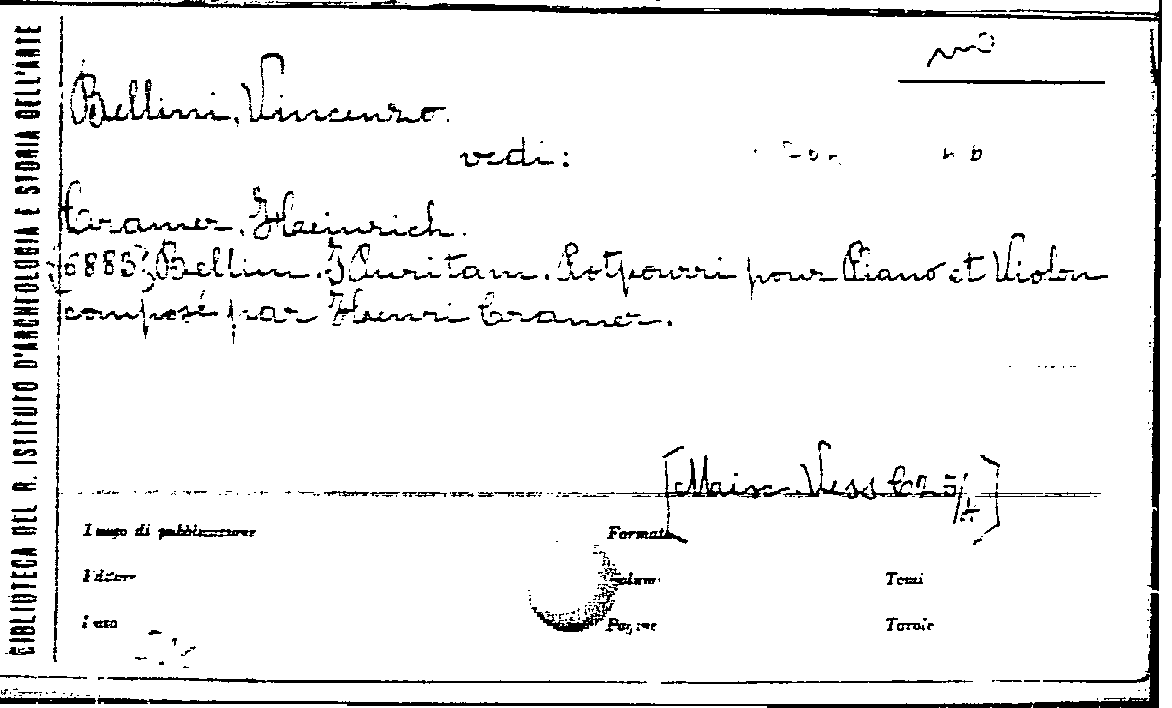 BIBLIOTECA DEL R. ISTITUTO D'ARCHEOLOGIA E STORIA DELL'ARTE
Bellini, Vincenzo.
vedi:
Cramer, Heinrich.
(6883) Bellini. I Puritani. Potpourri pour Piano et Violon
composé par Henri Cramer.
[Maisc. Vess
Luogo di pubblicazione Formato
Editore Volumi Tomi
Pagine Tavole